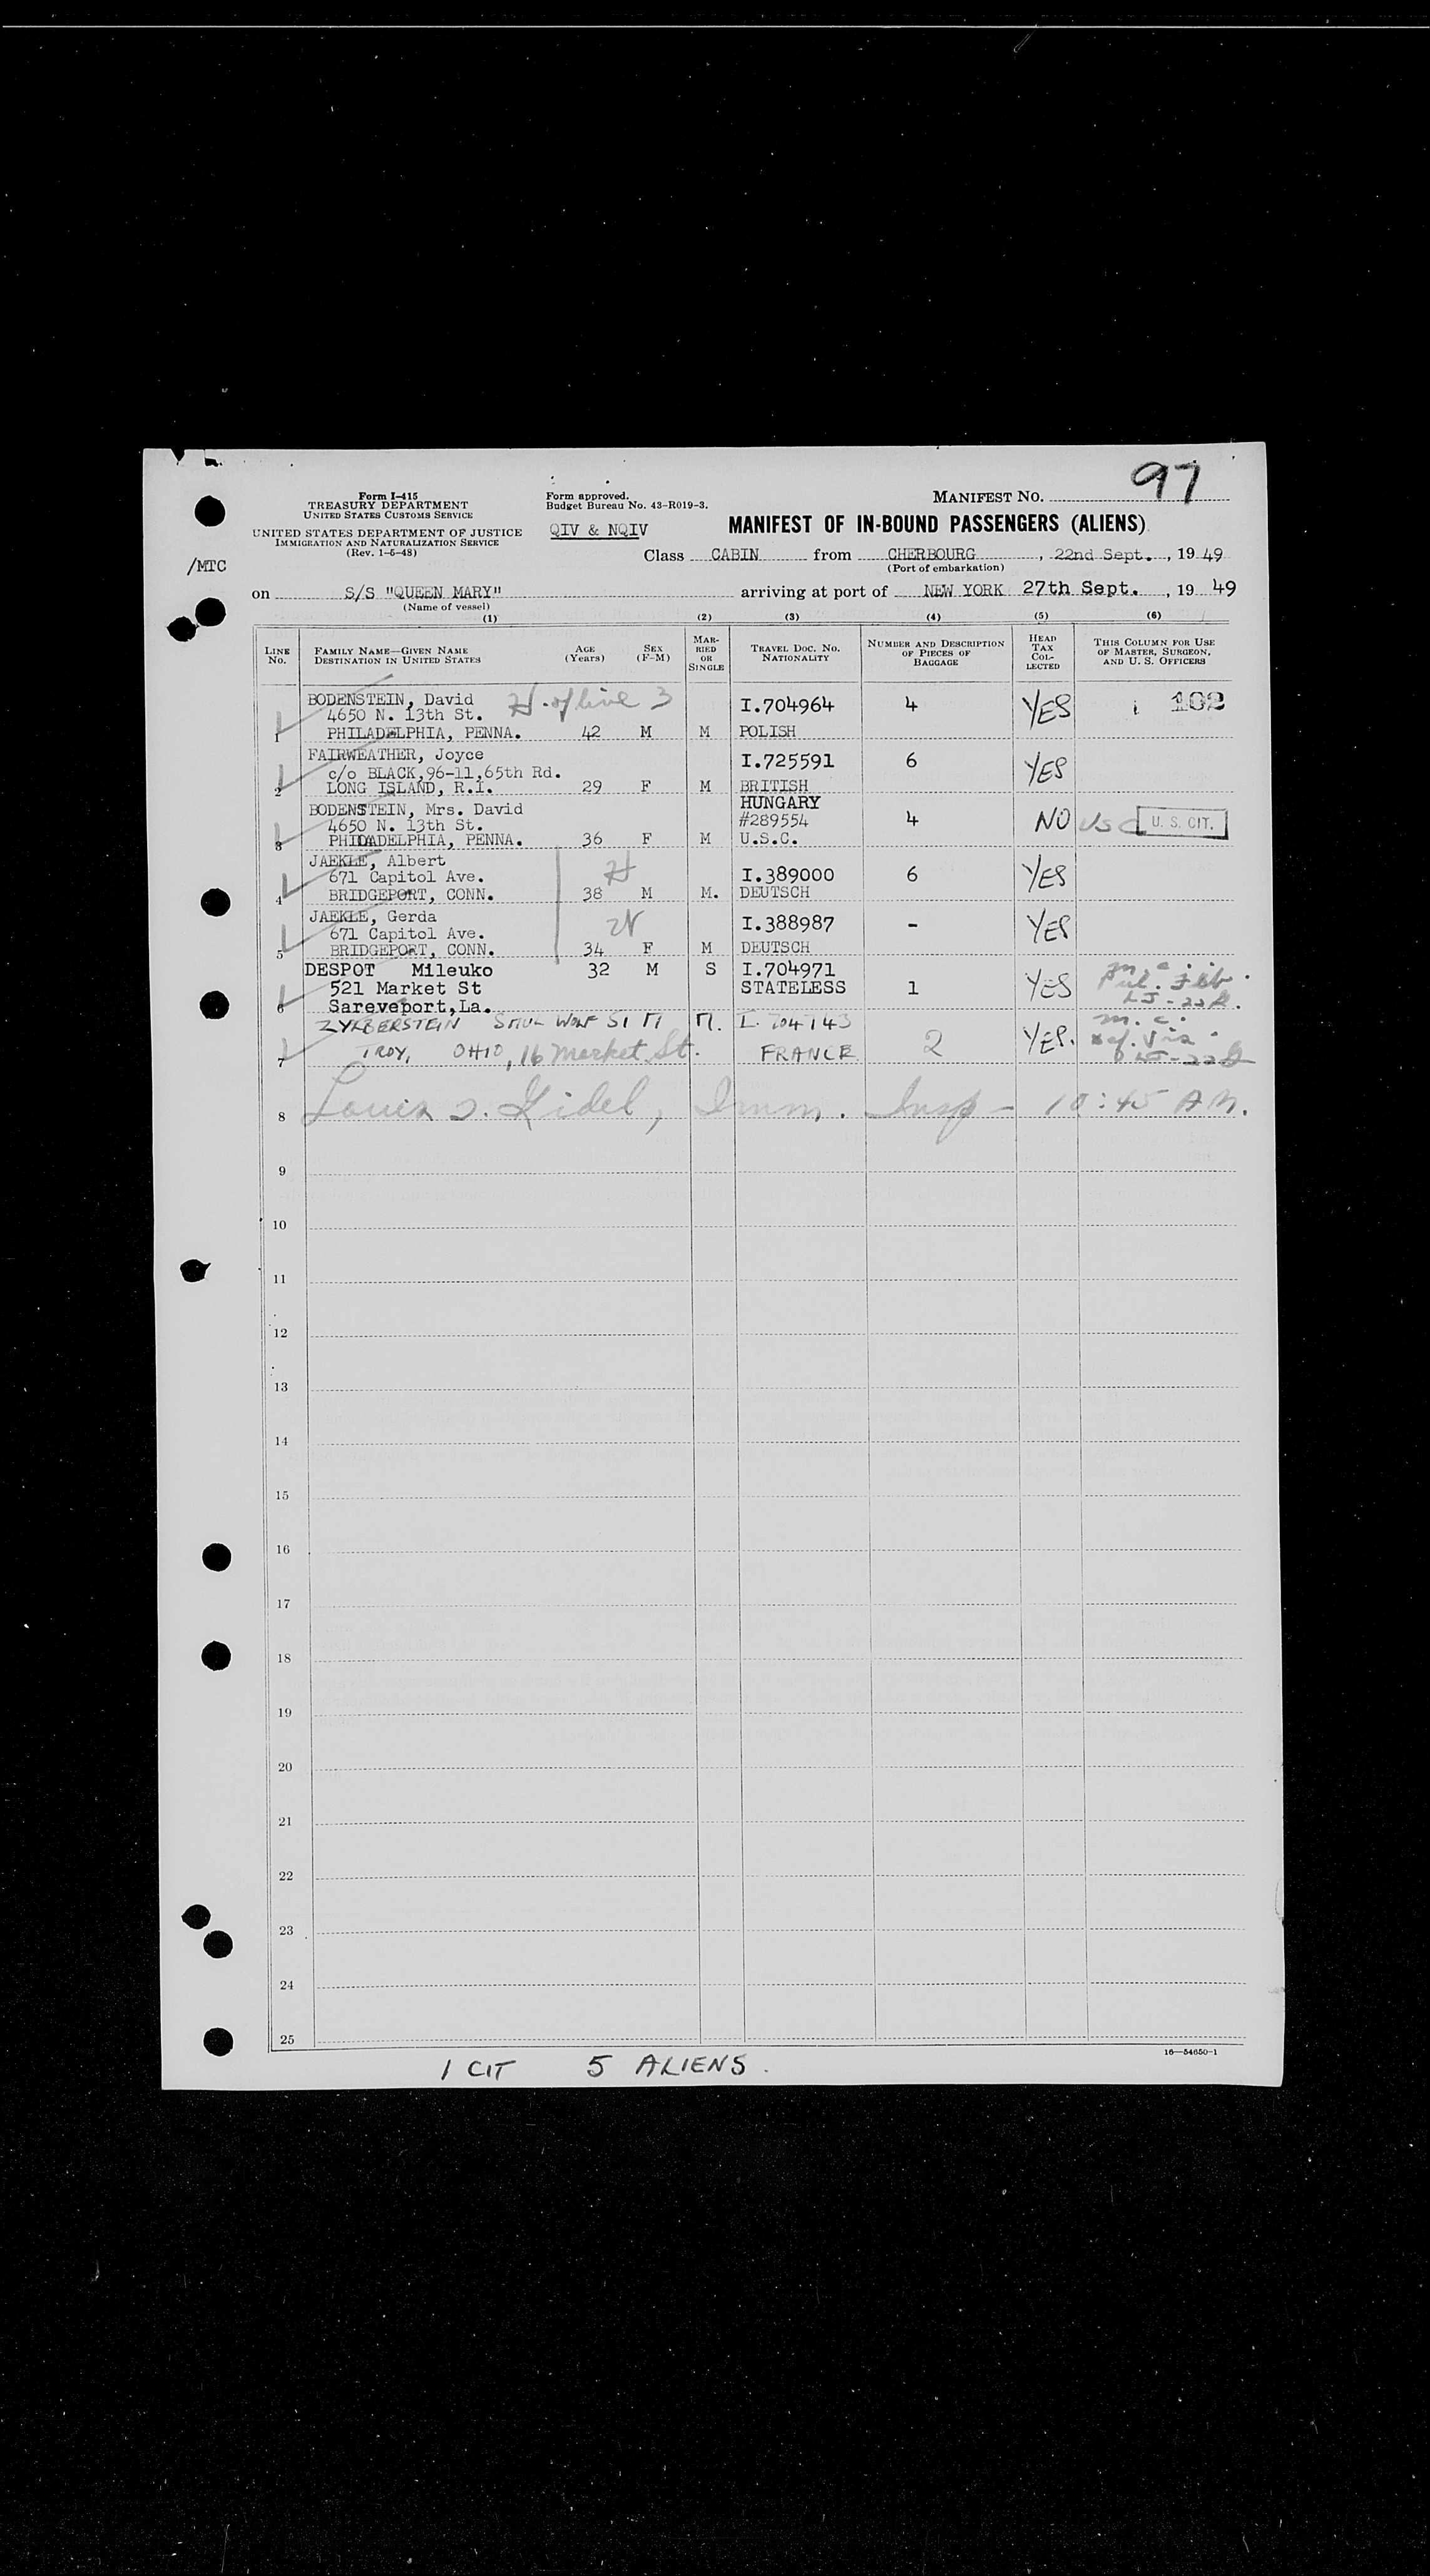 97
Form I-415
TREASURY DEPARTMENT
UNITED STATES CUSTOMS SERVICE
UNITED STATES DEPARTMENT OF JUSTICE
IMMIGRATION AND NATURALIZATION SERVICE
(Rev. 1-6-48)
/MTC
Form approved.
Budget Bureau No. 43-R019-3.
QIV & NQIV
MANIFEST NO.
MANIFEST OF IN-BOUND PASSENGERS (ALIENS)
Class CABIN from CHERBOURG, 22nd Sept., 1949
(Port of embarkation)
on S/S "QUEEN MARY" arriving at port of NEW YORK 27th Sept., 1949
(Name of vessel)
(1) (2) (3) (4) (5) (6)
LINE NO. FAMILY NAME—GIVEN NAME DESTINATION IN UNITED STATES AGE (Years) SEX (F-M) MARRIED OR SINGLE TRAVEL DOC. NO. NATIONALITY NUMBER AND DESCRIPTION OF PIECES OF BAGGAGE HEAD TAX COLLECTED THIS COLUMN FOR USE OF MASTER, SURGEON, AND U. S. OFFICERS
BODENSTEIN, David H. of line 3 I.704964 4 YES 162
4650 N. 13th St.
1 PHILADELPHIA, PENNA. 42 M M POLISH
FAIRWEATHER, Joyce I.725591 6 YES
c/o BLACK,96-11,65th Rd.
2 LONG ISLAND, R.I. 29 F M BRITISH
BODENSTEIN, Mrs. David HUNGARY
4650 N. 13th St. #289554 4 NO USC U. S. CIT.
3 PHILADELPHIA, PENNA. 36 F M U.S.C.
JAEKLE, Albert H
671 Capitol Ave. I.389000 6 YES
4 BRIDGEPORT, CONN. 38 M M. DEUTSCH
JAEKLE, Gerda W
671 Capitol Ave. I.388987 - YES
5 BRIDGEPORT, CONN. 34 F M DEUTSCH
DESPOT Mileuko 32 M S I.704971
521 Market St STATELESS 1 YES
6 Sareveport,La.
ZYLBERSTEIN SMUL WOLF 51 M M. I. 704743 m.c.
7 TROY, OHIO, 16 Market St. FRANCE 2 YES.
8 Louis Gidel, Imm. Insp - 10:45 AM.
9
10
11
12
13
14
15
16
17
18
19
20
21
22
23
24
25
16—54650-1
1 CIT 5 ALIENS.